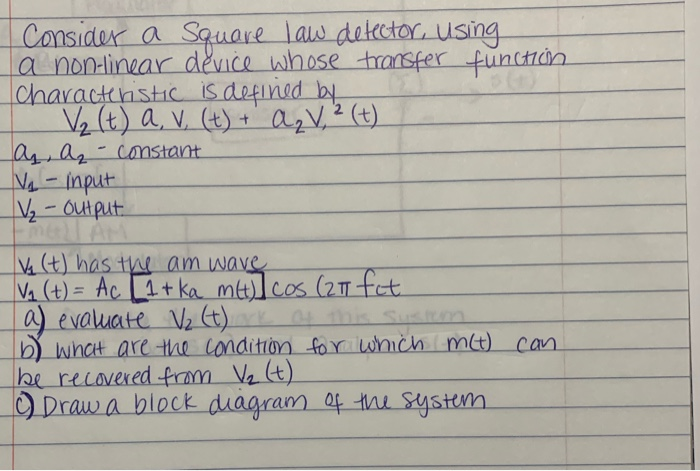 Consider a Square law detector, using
a non-linear device whose transfer function
characteristic is defined by
V₂(t) a, V, (t) + a₂V,²(t)
a₁, a₂ - constant
V₁ - input
V₂ - output
V₁(t) has the am wave
V₁(t) = Ac [1 + ka m(t)] cos (2π fct
a) evaluate V₂(t)
b) what are the condition for which m(t) can
be recovered from V₂(t)
c) Draw a block diagram of the system